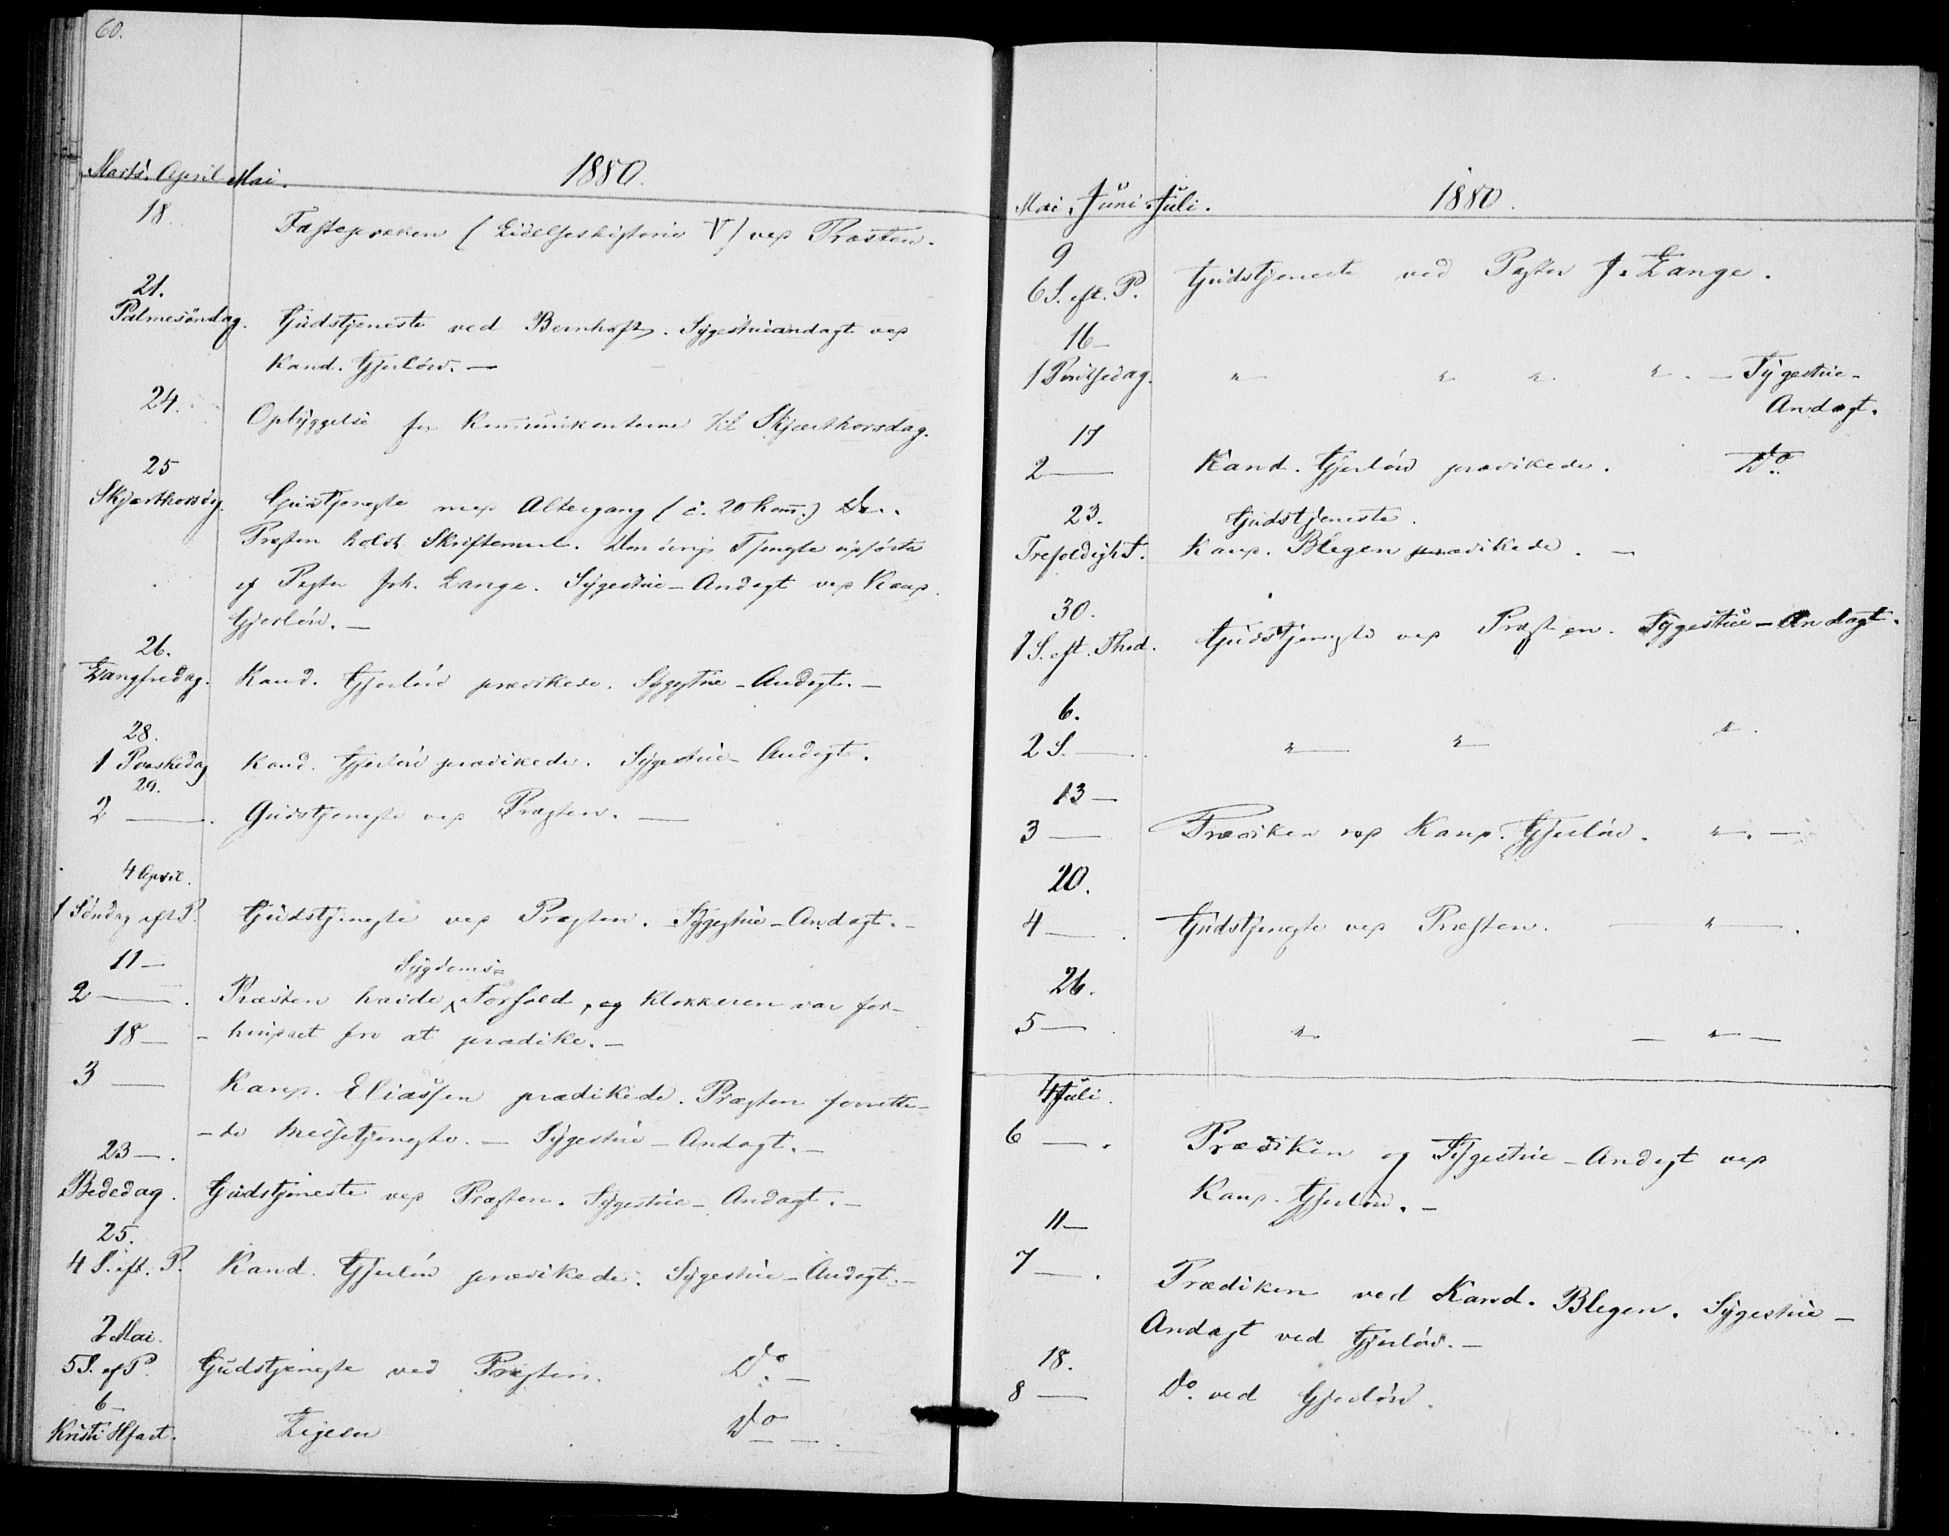 60.
Marts. April Mai. 1880.
18. Fasteprœken (Lidelseshistorie V) ved Præsten.
21.
Palmesöndag. Gudstjeneste ved Bernhoft. Sygestueandagt ved
Kand. Gjerlöw. —
24. Opbyggelse for Kommunikanterne til Skjærthorsdag.
25
Skjærthorsdg. Gudstjeneste med Altergang (c. 20 Kom.)
Præsten holdt Skriftemaal. Den övrige Tjeneste udførte
af Pastor Joh. Lange. Sygestue-Andagt ved Kand.
Gjerlöw. —
26.
Langfredag. Kand. Gjerlöw prædikede. Sygestue-Andagt. —
28.
1 Paaskedag Kand. Gjerlöw prædikede. Sygestue-Andagt.
29.
2 —— . Gudstjeneste ved Præsten. —
4 April.
1 Söndag eft P. Gudstjeneste ved Præsten. Sygestue-Andagt. —
11 — Sygdoms=
2 —— . Præsten havde Forfald, og Klokkeren var for-
18 — - hindret fra at prædike. —
3 —— Kand. Eliassen prædikede. Præsten forrette-
- de Messetjeneste. — Sygestue-Andagt. —
23 — .
Bededag. Gudstjeneste ved Præsten. Sygestue-Andagt. —
25.
4 S. eft. P. Kand. Gjerlöw prædikede. Sygestue-Andagt. —
2 Mai.
5 S. ef P. Gudstjeneste ved Præsten. Do. —
6 —
Kristi Hfart. Ligesaa Do — — .
Mai. Juni. Juli. 1880.
9
6 S. eft. P. Gudstjeneste ved Pastor J. Lange.
16 —
1 Pintsedag. " " " " . — Sygestue-
Andagt.
17
2 —— Kand. Gjerlöw prædikede. Do.
23. Gudstjeneste.
Trefoldighf. Kand. Blegen prædikede. —
30.
1 S. eft. Thed. Gudstjeneste ved Præsten. Sygestue-Andagt.
6.
2 S. —— " " " .
13 —
3 —— Prædiken ved Kand. Gjerlöw. " . —
20.
4 —— . Gudstjeneste ved Præsten. — " — .
26.
5 —— . " — " —
4 Juli.
6 —— . Prædiken og Sygestue-Andagt ved
Kand. Gjerlöw. —
11 —
7 —— . Prædiken ved Kand. Blegen. Sygestue-
Andagt ved Gjerlöw. —
18.
8 —— Do. ved Gjerlöw.